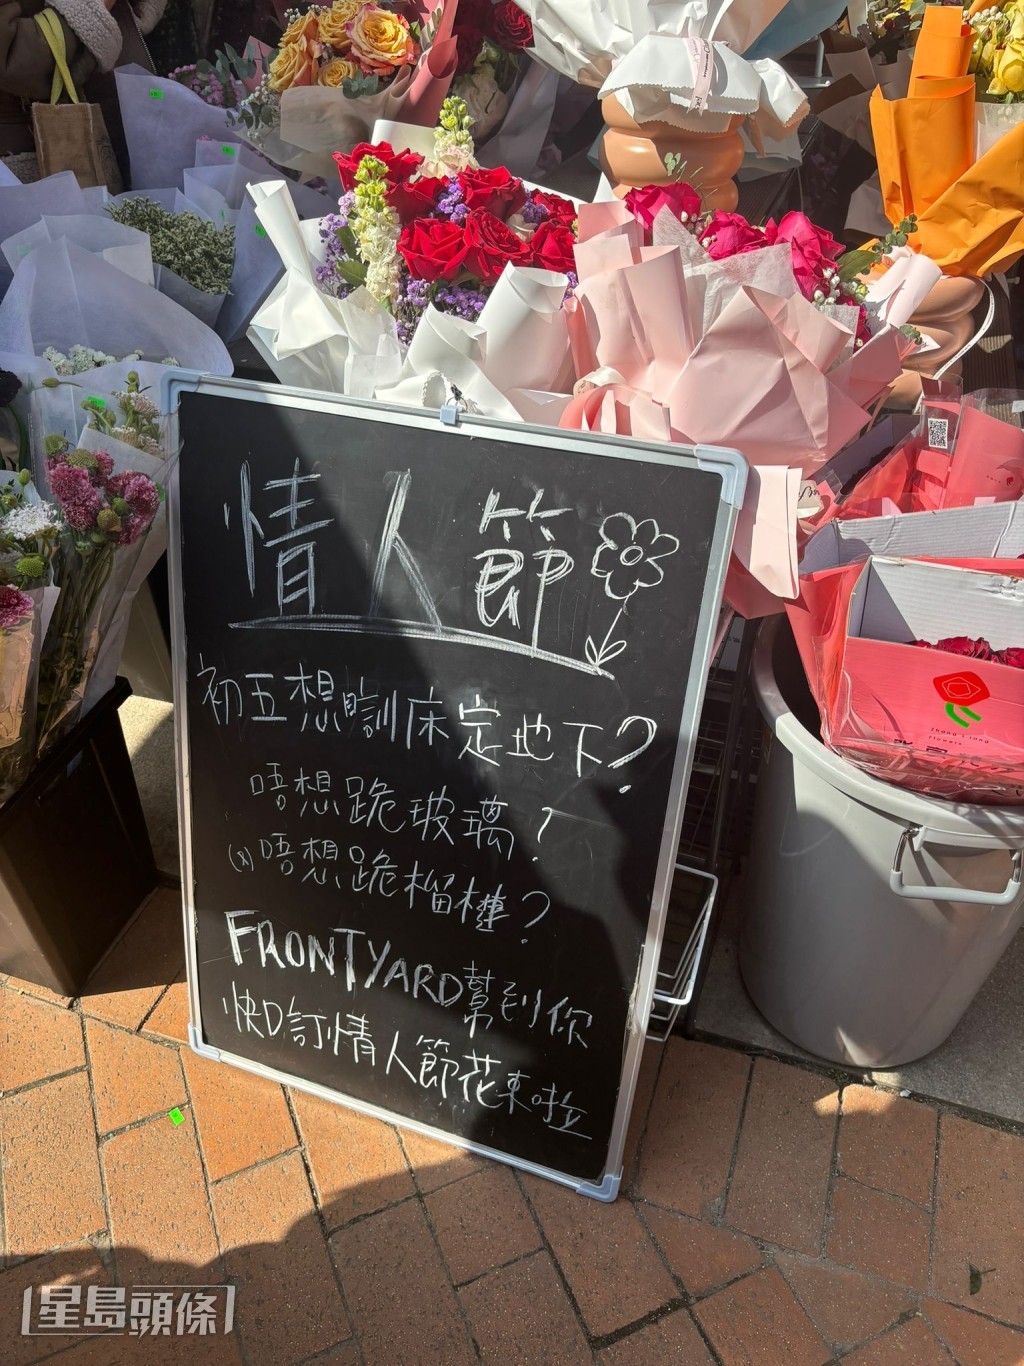 情人節
初五想瞓床定地下？
唔想跪玻璃？
(x)唔想跪榴槤？
FRONTYARD幫到你
快D訂情人節花束啦
zhang's lang
flowers
星島頭條